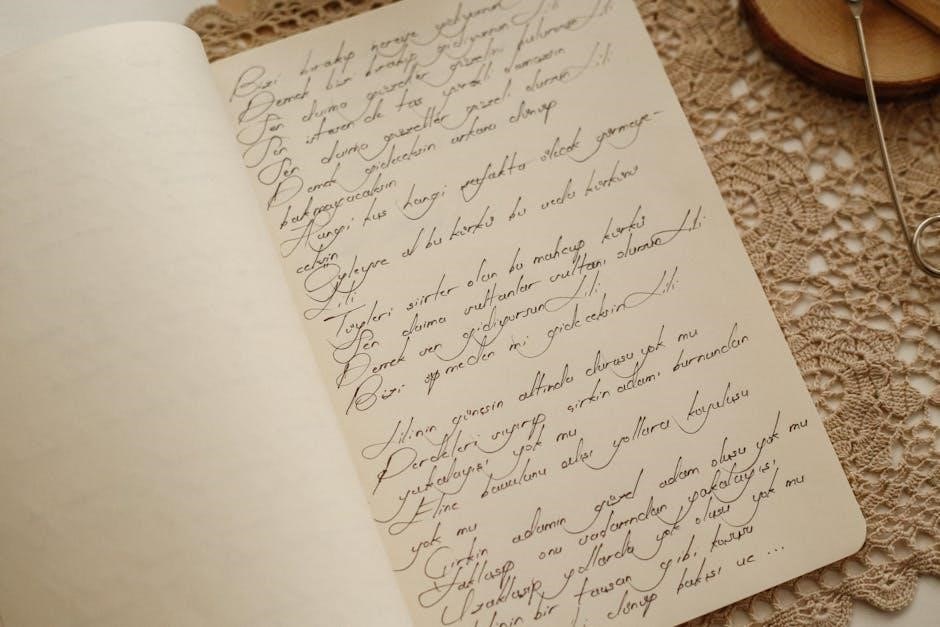 Bizi bırakıp nereye gidiyorsun
Demek bizi bırakıp gidiyorsun Lili
Sen daima güzeller güzelini bulursun Lili
Sen istesen de taş yürekli olamazsın
Sen daima güzeller güzeli olursun Lili
Demek gideceksin arkana dönüp
bakmayacaksın
Hangi kuş hangi ölecek görmeye-
ceksin
Öyleyse al bu kürkü bu veda kürkünü
Lili
Tüyleri şiirler olan bu mahcup kürkü
Sen daima sultanlar sultanı olursun Lili
Demek sen gidiyorsun Lili
Bizi öpmeden mi gideceksin Lili
Lilinin güneşin altında duruşu yok mu
Perdeleri sıyırıp çirkin adamı burnundan
yakalayışı yok mu
Eline bavulunu alışı yollara koyuluşu
yok mu
Çirkin adamın güzel adam oluşu yok mu
Yaklaşıp onu yakalayışı
Uzaklaşıp yollarda yok oluşu yok mu
bir tavşan gibi koşuşu
dönüp bakışı ve ...